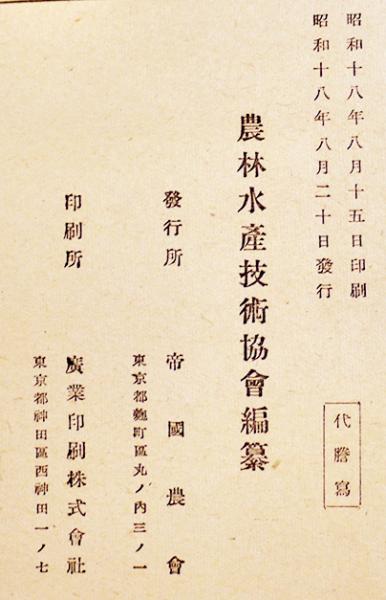 昭和十八年八月十五日印刷
昭和十八年八月二十日發行
代謄寫
農林水產技術協會編纂
發行所
帝國農會
東京都麹町區丸ノ內三ノ一
印刷所
廣業印刷株式會社
東京都神田區西神田一ノ七